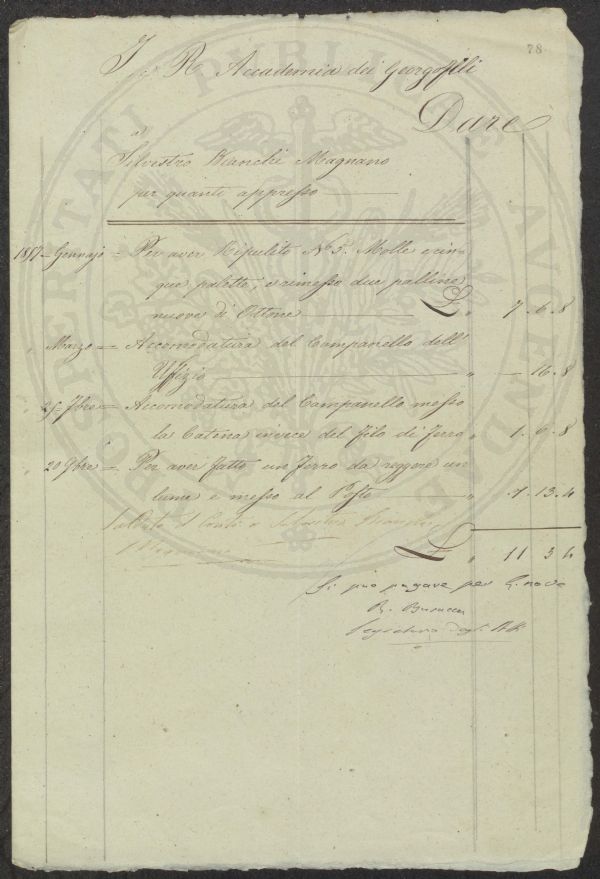 78.
I. R. Accademia dei Georgofili
Dare
a
Silvestro Bianchi Magnano
per quanto appresso
1857 = Gennajo = Per aver Ripulito N° 5. Molle e cin=
que palette, e rimesso due palline
nuove di Ottone £ " 7. 6. 8
" Marzo = Accomodatura del Campanello dell'
Uffizio " — 16. 8
25 = 7bre = Accomodatura del Campanello messo
la Catena invece del filo di ferro " 1. 6. 8
20 9bre = Per aver fatto un ferro da reggere un
lume e messo al Posto " 1. 13. 4
Saldato il Conto a Silvestro Bianchi
Magnano
£ " 11 3 4
Si può pagare per £. nove
R.
Segretario degli Atti
PROSPERITATI PUBLICAE AUGENDAE